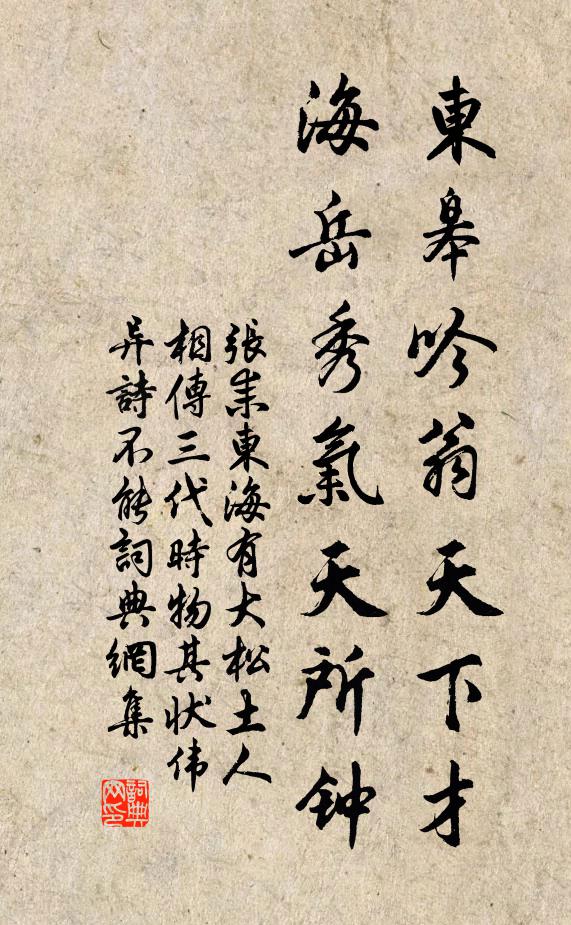 東皋吟翁天下才
海岳秀氣天所钟
張耒東海有大松土人
相傳三代時物其状伟
异詩不能詞典網集
詞典網印